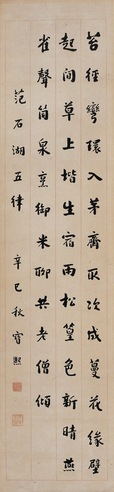 苔徑彎環入茅齋取次成蔓花緣壁
起間草上堦生宿雨松篁色新晴燕
雀聲筒泉烹御米聊共老僧傾
范石湖五律 辛巳秋寶熙